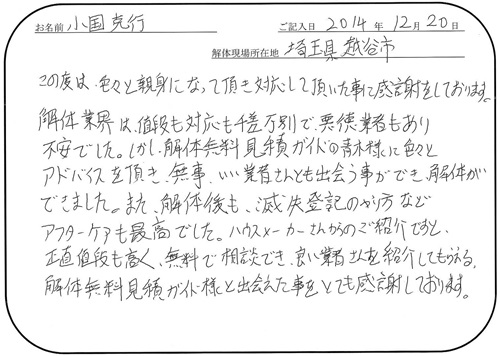 お名前 小国克行 ご記入日 2014 年 12 月 20 日
解体現場所在地 埼玉県越谷市
この度は、色々と親身になって頂き対応して頂いた事に感謝をしております。
解体業界は、値段も対応も千差万別で、悪徳業者もあり
不安でした。しかし、解体無料見積ガイドの青木様に色々と
アドバイスを頂き、無事、いい業者さんとも出会う事ができ、解体が
できました。また、解体後も、滅失登記のやり方など
アフターケアも最高でした。ハウスメーカーさんからのご紹介ですと、
正直値段も高く、無料で相談でき、良い業者さんを紹介してもらえる、
解体無料見積ガイド様と出会えた事をとても感謝しております。